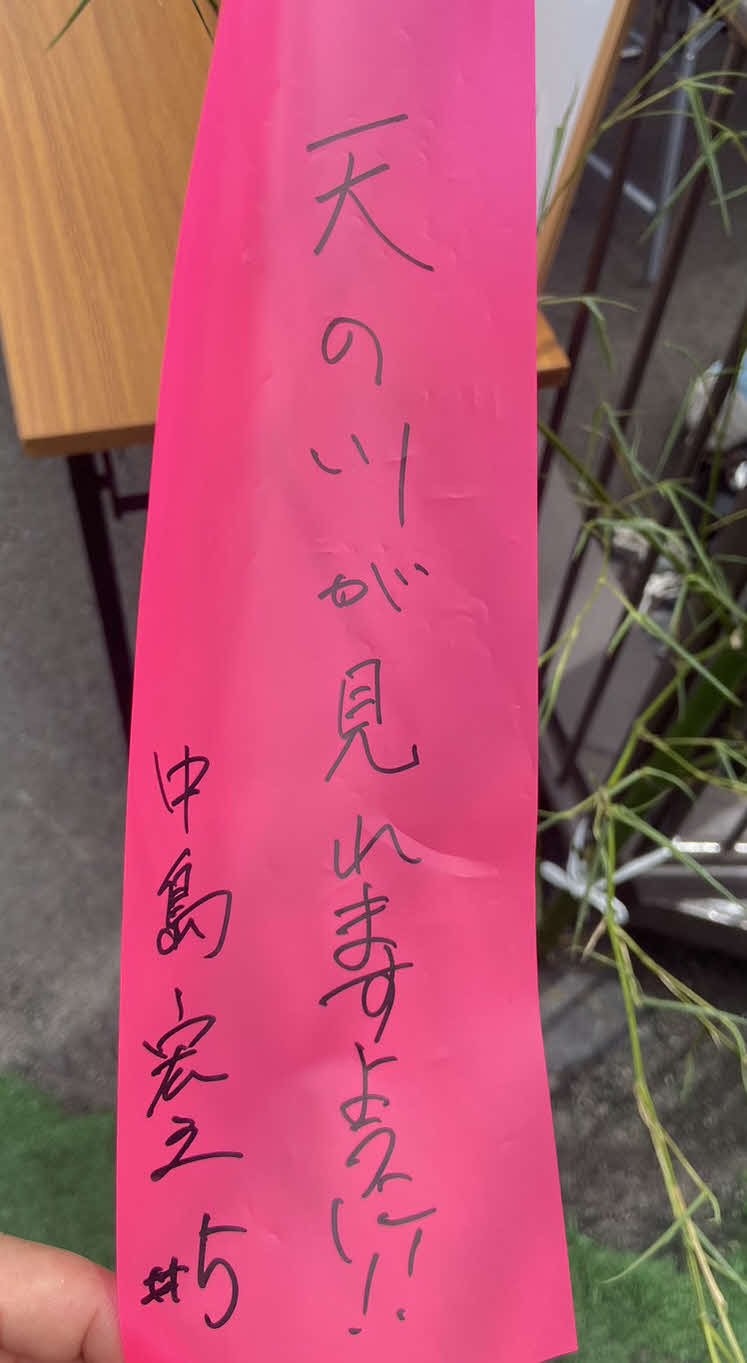 天の川が見れますように!!
中島宏之 #5